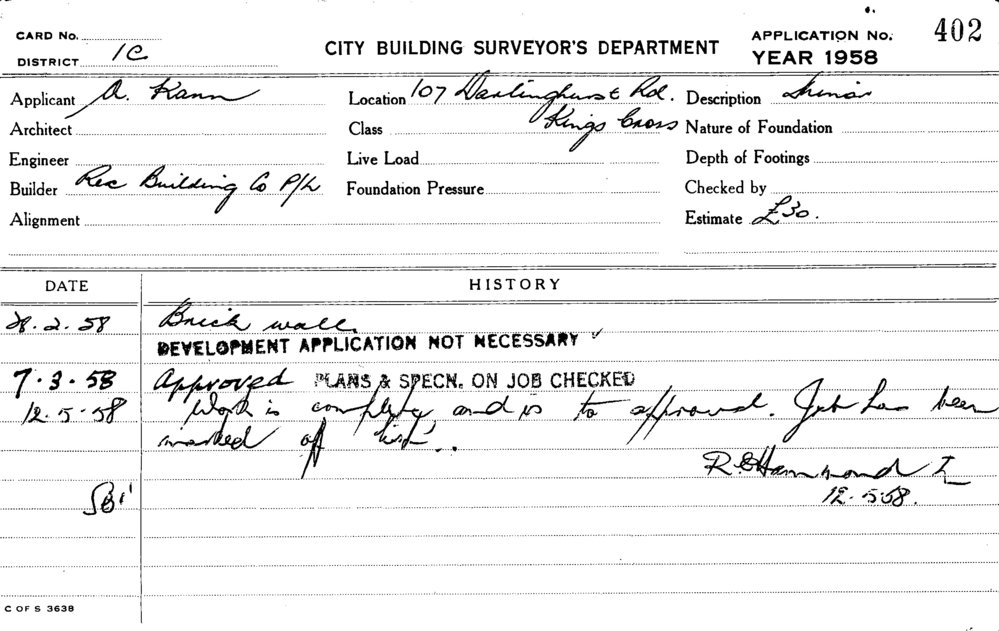 402
CARD No.
DISTRICT 1C
CITY BUILDING SURVEYOR'S DEPARTMENT
APPLICATION No.
YEAR 1958
Applicant A. Kann
Location 107 Darlinghurst Rd.
Description Minor
Architect
Class Kings Cross
Nature of Foundation
Engineer
Live Load
Depth of Footings
Builder Rex Building Co P/L
Foundation Pressure
Checked by
Alignment
Estimate £30.
DATE
HISTORY
28.2.58 Brick wall.
DEVELOPMENT APPLICATION NOT NECESSARY
7.3.58 Approved PLANS & SPECN. ON JOB CHECKED
12.5.58 Work is complete and is to approval. Job has been
marked off list.
R Hammond
12.5.58.
C OF S 3638